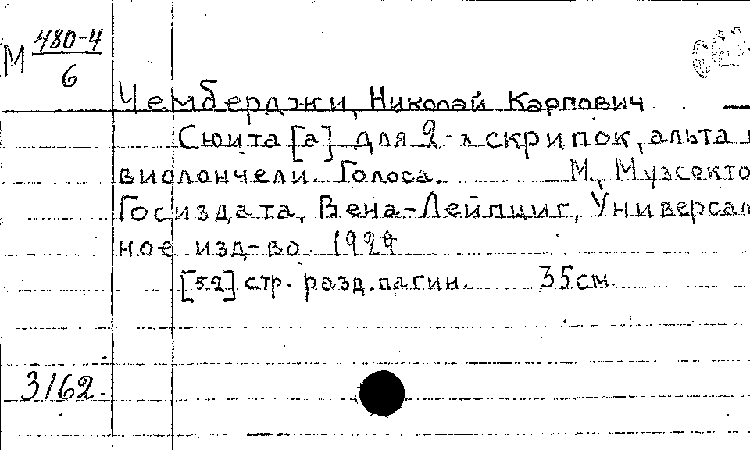 М 480-4
6
Чемберджи, Николай Карпович
Сюита [а] для 2-х скрипок, альта и
виолончели. Голоса. М., Музсекто
Госиздата, Вена-Лейпциг, Универсал
ное изд-во. 1929
[52] стр. разд. пагин. 35см.
3162.